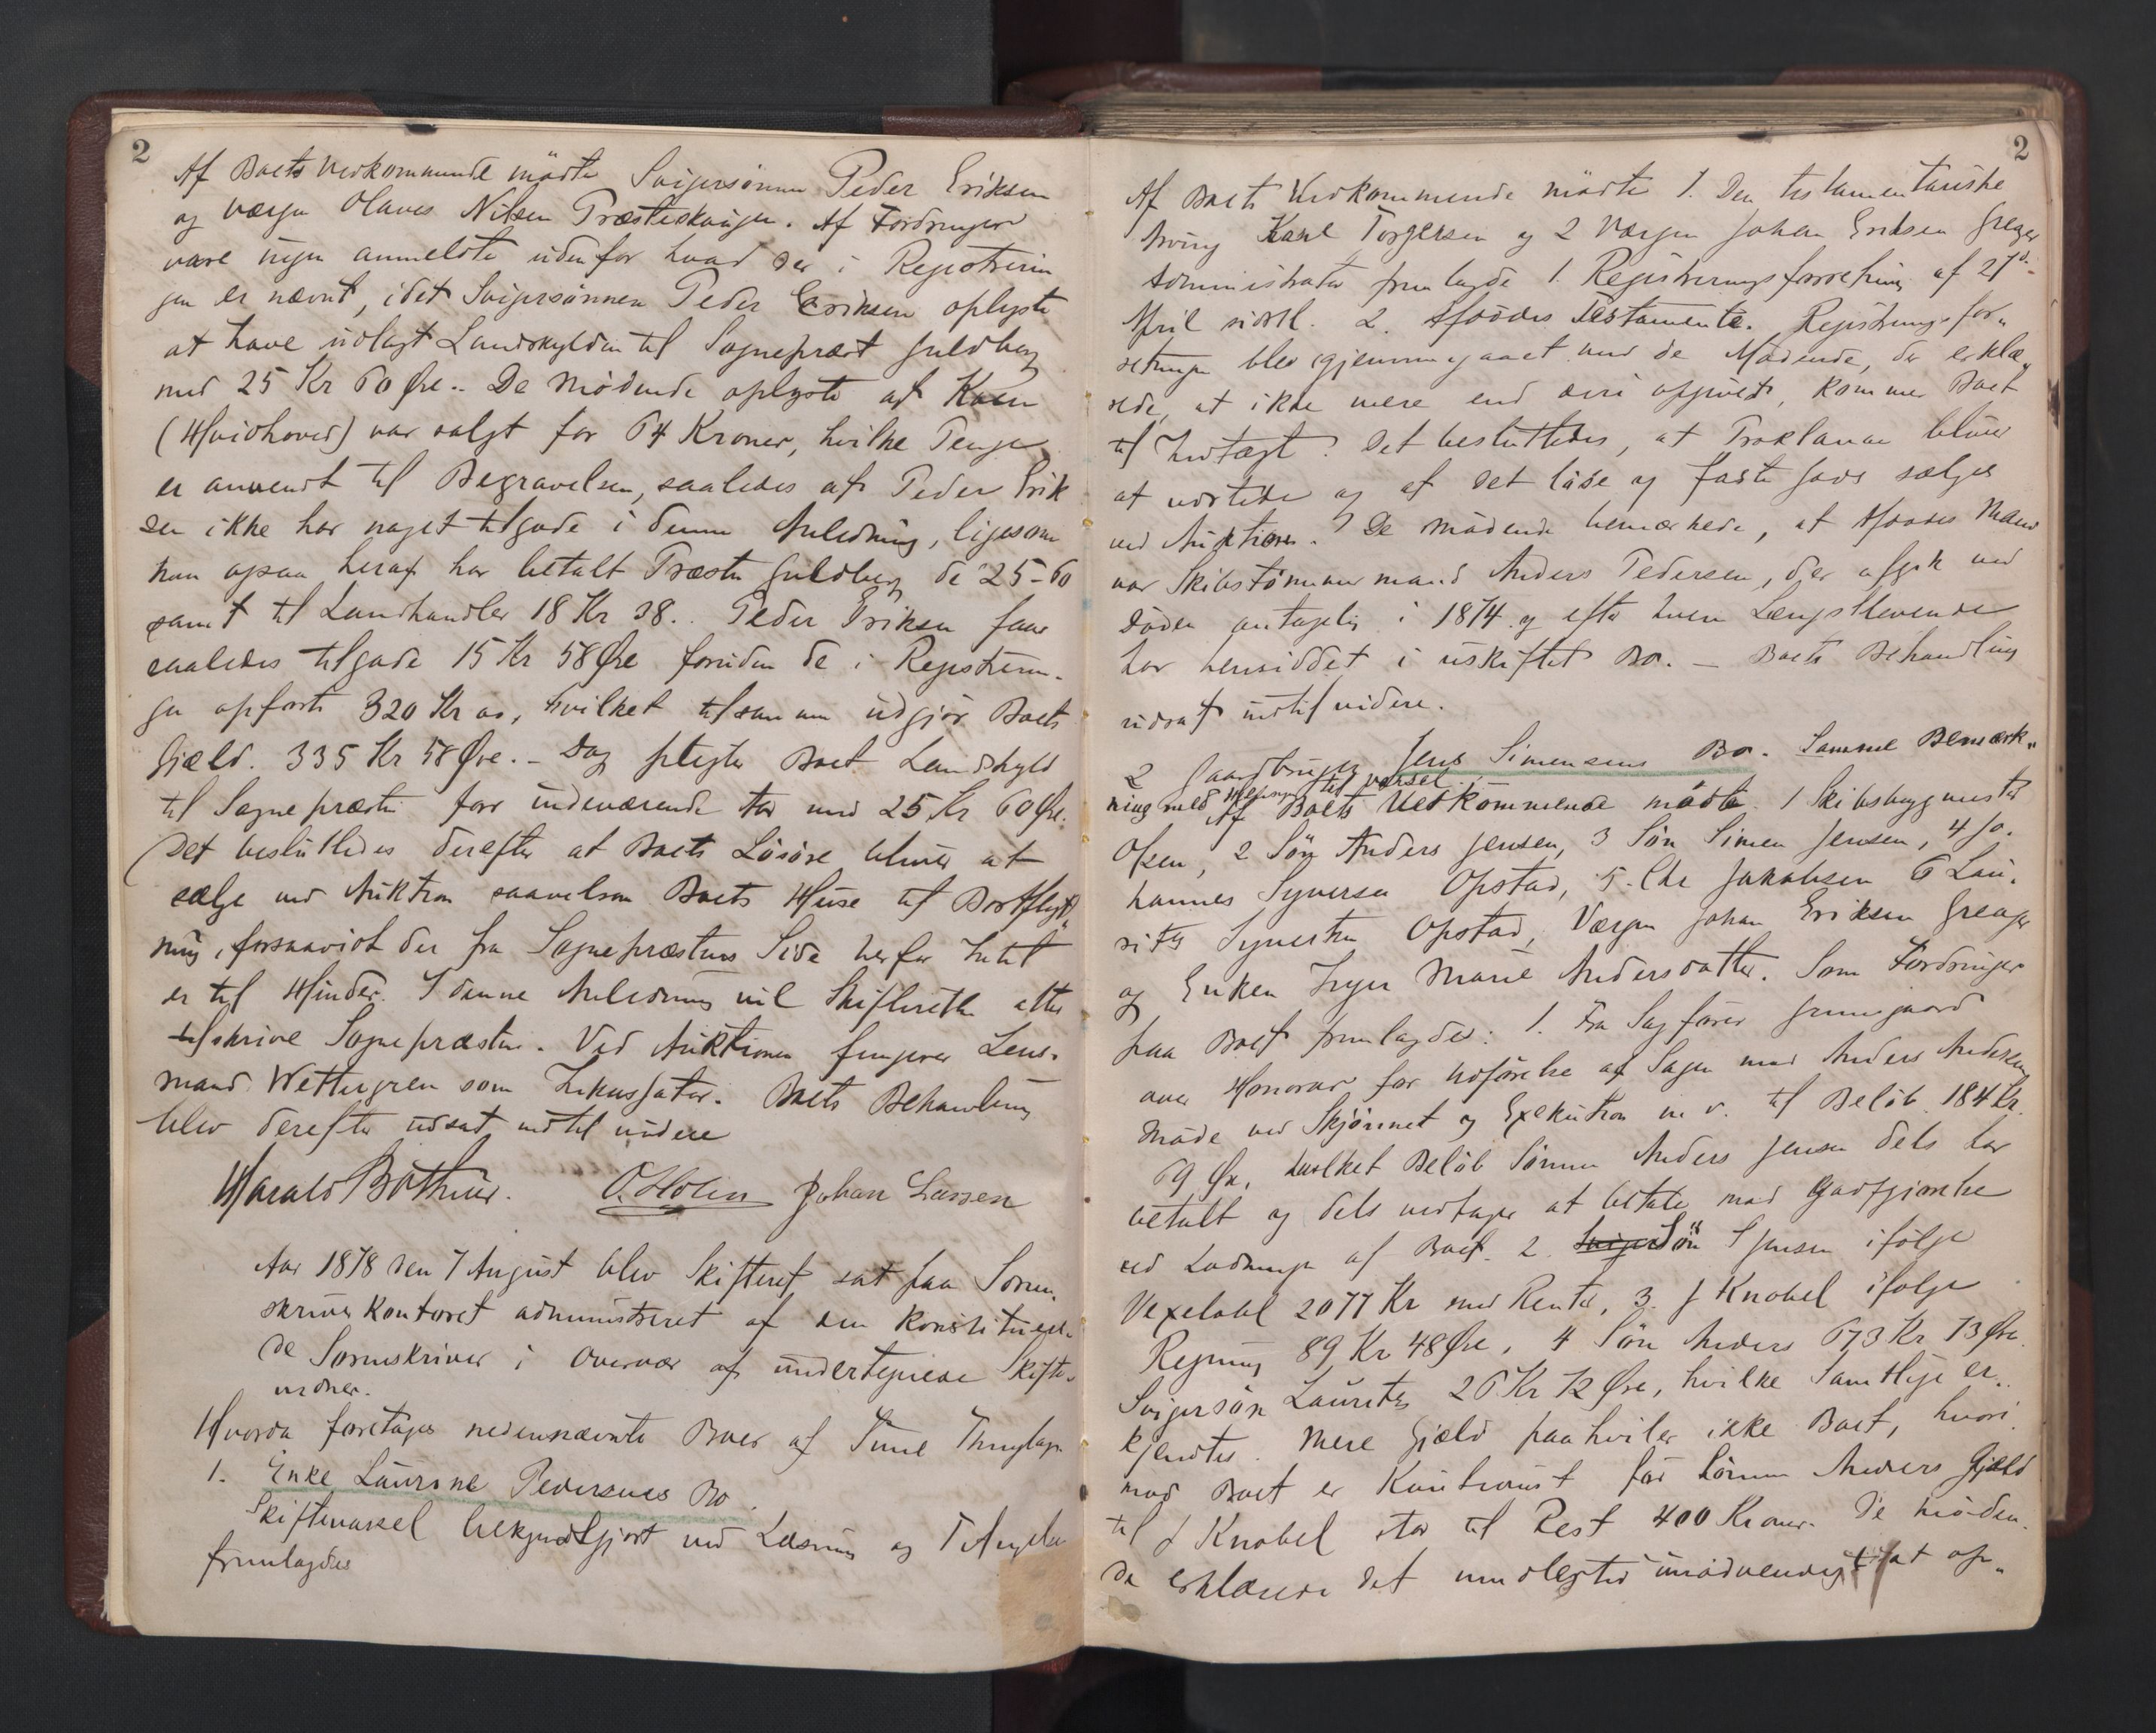 2
Af Boets Vedkommende mødte Svigersønnen Peder Eriksen
og Værgen Olaves Nilsen Præsteskougen. Af Fordringer
vare ingen anmeldte udenfor hvad der i Registrerin
gen er nævnt, idet Svigersønnen Peder Eriksen oplyste
at have udlagt Landskylden til Sognepræst Guldberg
med 25 Kr 60 Øre.- De Mødende oplyste at Koen
(Hvidhoved) var solgt for 64 Kroner, hvilke Penge
er anvendt til Begravelsen, saaledes at Peder Erik
sen ikke har noget tilgode i denne Anledning, ligesom
han ogsaa heraf har betalt Præsten Guldberg de 25-60
samt til Landhandler 18 Kr 38. Peder Eriksen faar
saaledes tilgode 15 Kr 58 Øre foruden de i Registrerin-
gen opførte 320 Kr 00, hvilket tilsammen udgjør Boets
Gjæld. 335 Kr 58 Øre.- Dog pligter Boet Landskyld
til Sognepræsten for indeværende Aar med 25 Kr 60 Øre.
Det besluttedes derefter at Boets Løsøre bliver at
sælge ved Auktion saavelsom Boets Huse til Bortflyt„
ning, forsaavidt der fra Sognepræstens Side herfor Intet
er til Hinder. I denne Anledning vil Skifteretten atter
tilskrive Sognepræsten. Ved Auktionen fungerer Lens-
mand Wettergren som Inkassator. Boets Behandling
blev derefter udsat indtil videre
Harald Bothner. O. Holm Johan Larsen
Aar 1878 den 7 August blev Skifteret sat paa Soren-
skriverkontoret administreret af den konstitueren-
de Sorenskriver i Overvær af undertegnede Skifte-
vidner.
Hvorda foretages nedennævnte Boer af Tune Thinglag
1. Enke Laurine Pedersens Bo.
Skiftevarsel bekjendtgjort ved Læsning og
fremlagdes
2
Af Boets Vedkommende mødte 1. Den testamentariske
Arving Karl Torgersen og 2 Værgen Johan Eriksen Greager
Administrator fremlagde 1. Registreringsforretning af 27de
April sidstl. 2. Afdødes Testamente. Registreringsfor„
retningen blev igjennemgaaet med de Mødende, der erklæ„
rede, at ikke mere end deri opgivet, kommer Boet
til Indtægt. Det besluttedes, at Proklama bliver
at udstede og at det løse og faste Gods sælges
ved Auktion. De Mødende bemærkede, at Afdødes Mand
var Skibstømmermand Anders Pedersen, der afgik ved
Døden antagelig i 1874 og efter hvem Længstlevende
har hensiddet i uskiftet Bo. – Boets Behandling
udsat indtil videre.
2 Gaardbruger Jens Simensens Bo. Samme Bemærk„
ning med Hensyn til Varsel.
Af Boets Vedkommende mødte 1 Skibsbygmester
Olsen, 2 Søn Anders Jensen, 3 Søn Simen Jensen, 4 Jo-
hannes Syversen Opstad, 5. Chr Jakobsen 6 Lau-
rits Syvertsen Opstad, Værgen Johan Eriksen Greager
og Enken Inger Marie Andersdatter. Som Fordringer
paa Boet fremlagdes: 1. Fra Sagfører
over Honorar for Udførelse af Sagen mod Anders Andersen,
Møde ved Skjønnet og Exekution m. v. til Beløb 184 Kr.
69 Øre, hvilket Beløb Sønnen Anders Jensen dels har
betalt og dels vedtager at betale mod Godtgjørelse
ved Ladningen af Boet. 2. Søn S Jensen ifølge
Vexelobl 2077 Kr med Renter, 3. J Knobel ifølge
Regning 89 Kr 48 Øre, 4 Søn Anders 673 Kr 73 Øre
Svigersøn Laurits 26 Kr 72 Øre, hvilke samtlige er„
kjendtes. Mere Gjæld paahviler ikke Boet, hvori
mod Boet er Kautionist for Sønnen Anders Gjæld
til J Knobel stor til Rest 400 Kroner. De Møden-
de erklærede det unødvendigt at op„